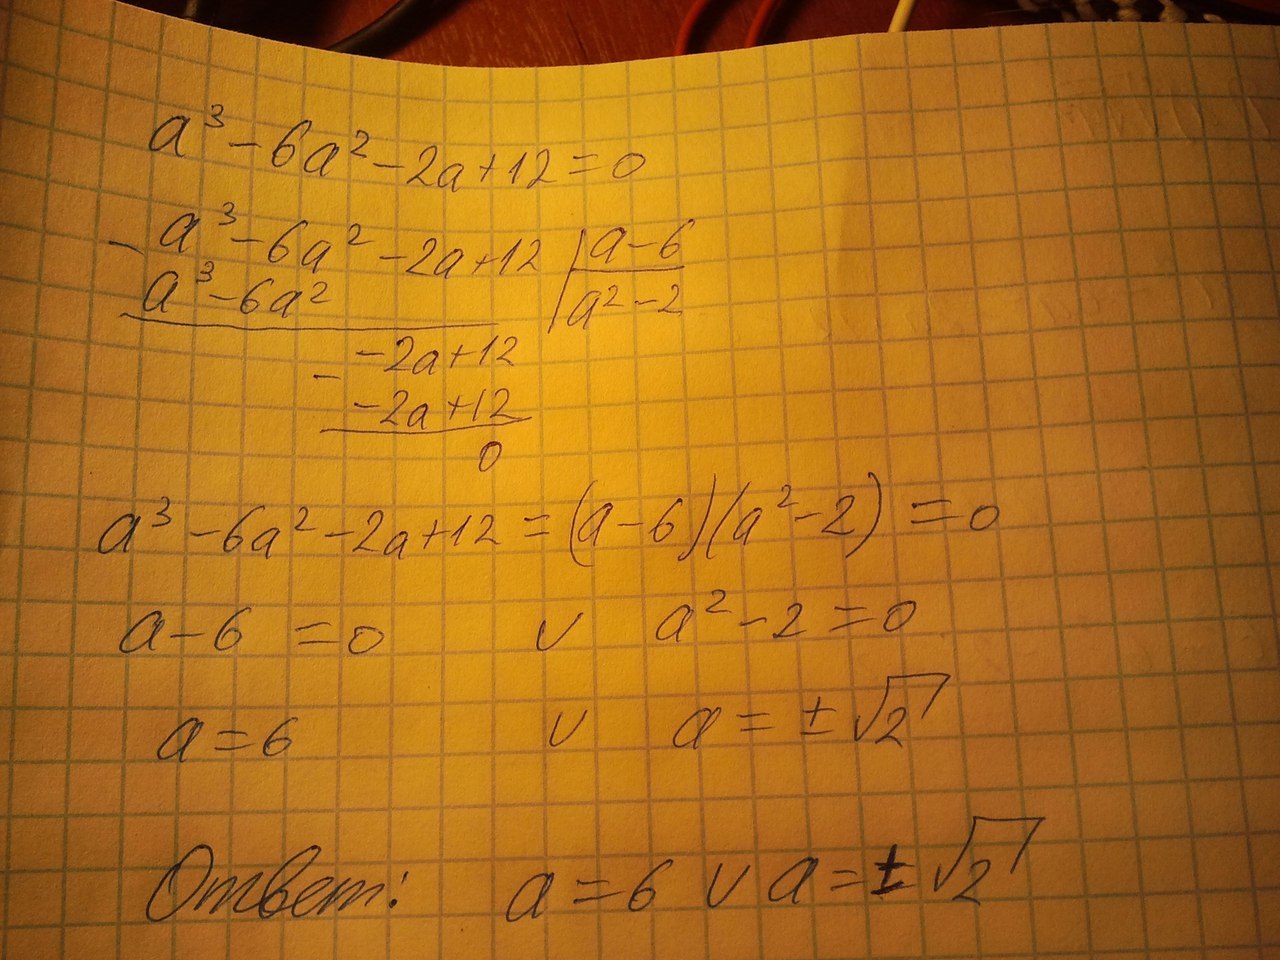 a³ - 6a² - 2a + 12 = 0
- a³ - 6a² - 2a + 12 | a - 6
a³ - 6a² | a² - 2
- -2a + 12
-2a + 12
0
a³ - 6a² - 2a + 12 = (a - 6)(a² - 2) = 0
a - 6 = 0 ∨ a² - 2 = 0
a = 6 ∨ a = ± √2
Ответ: a = 6 ∨ a = ± √2